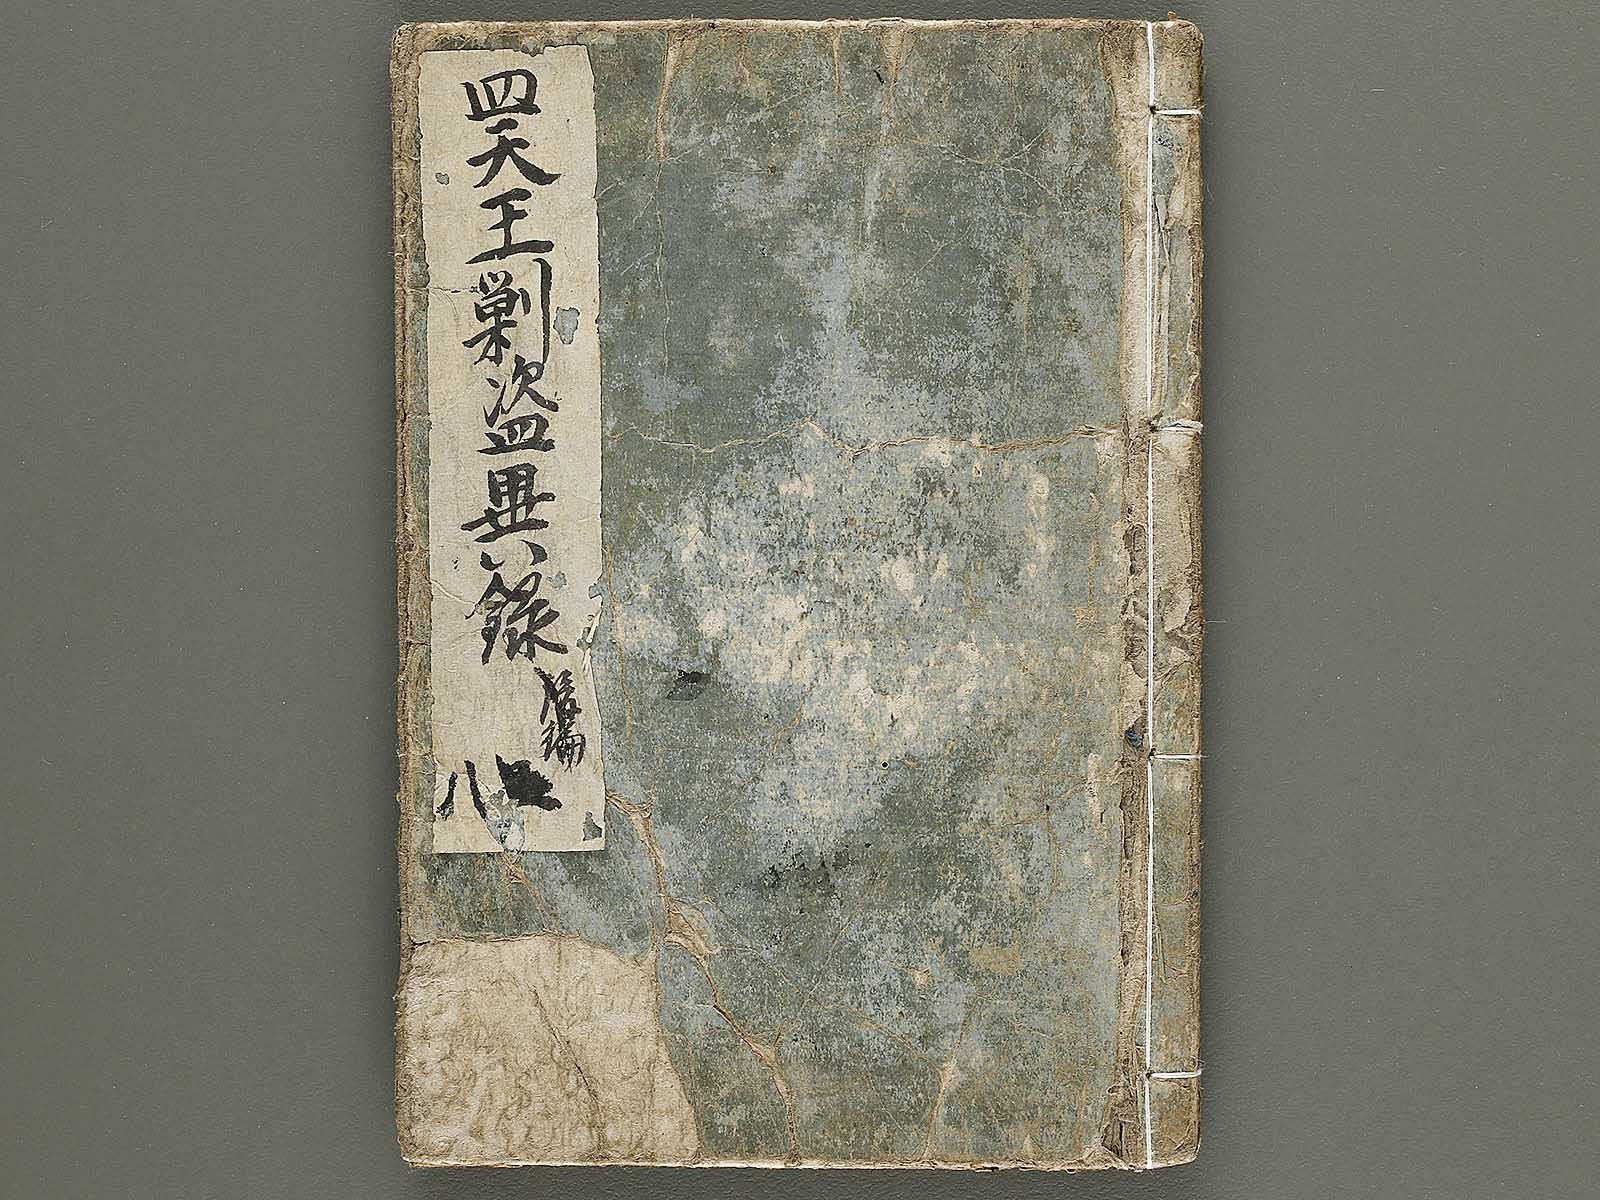 四天王剿盗異録
後編
八